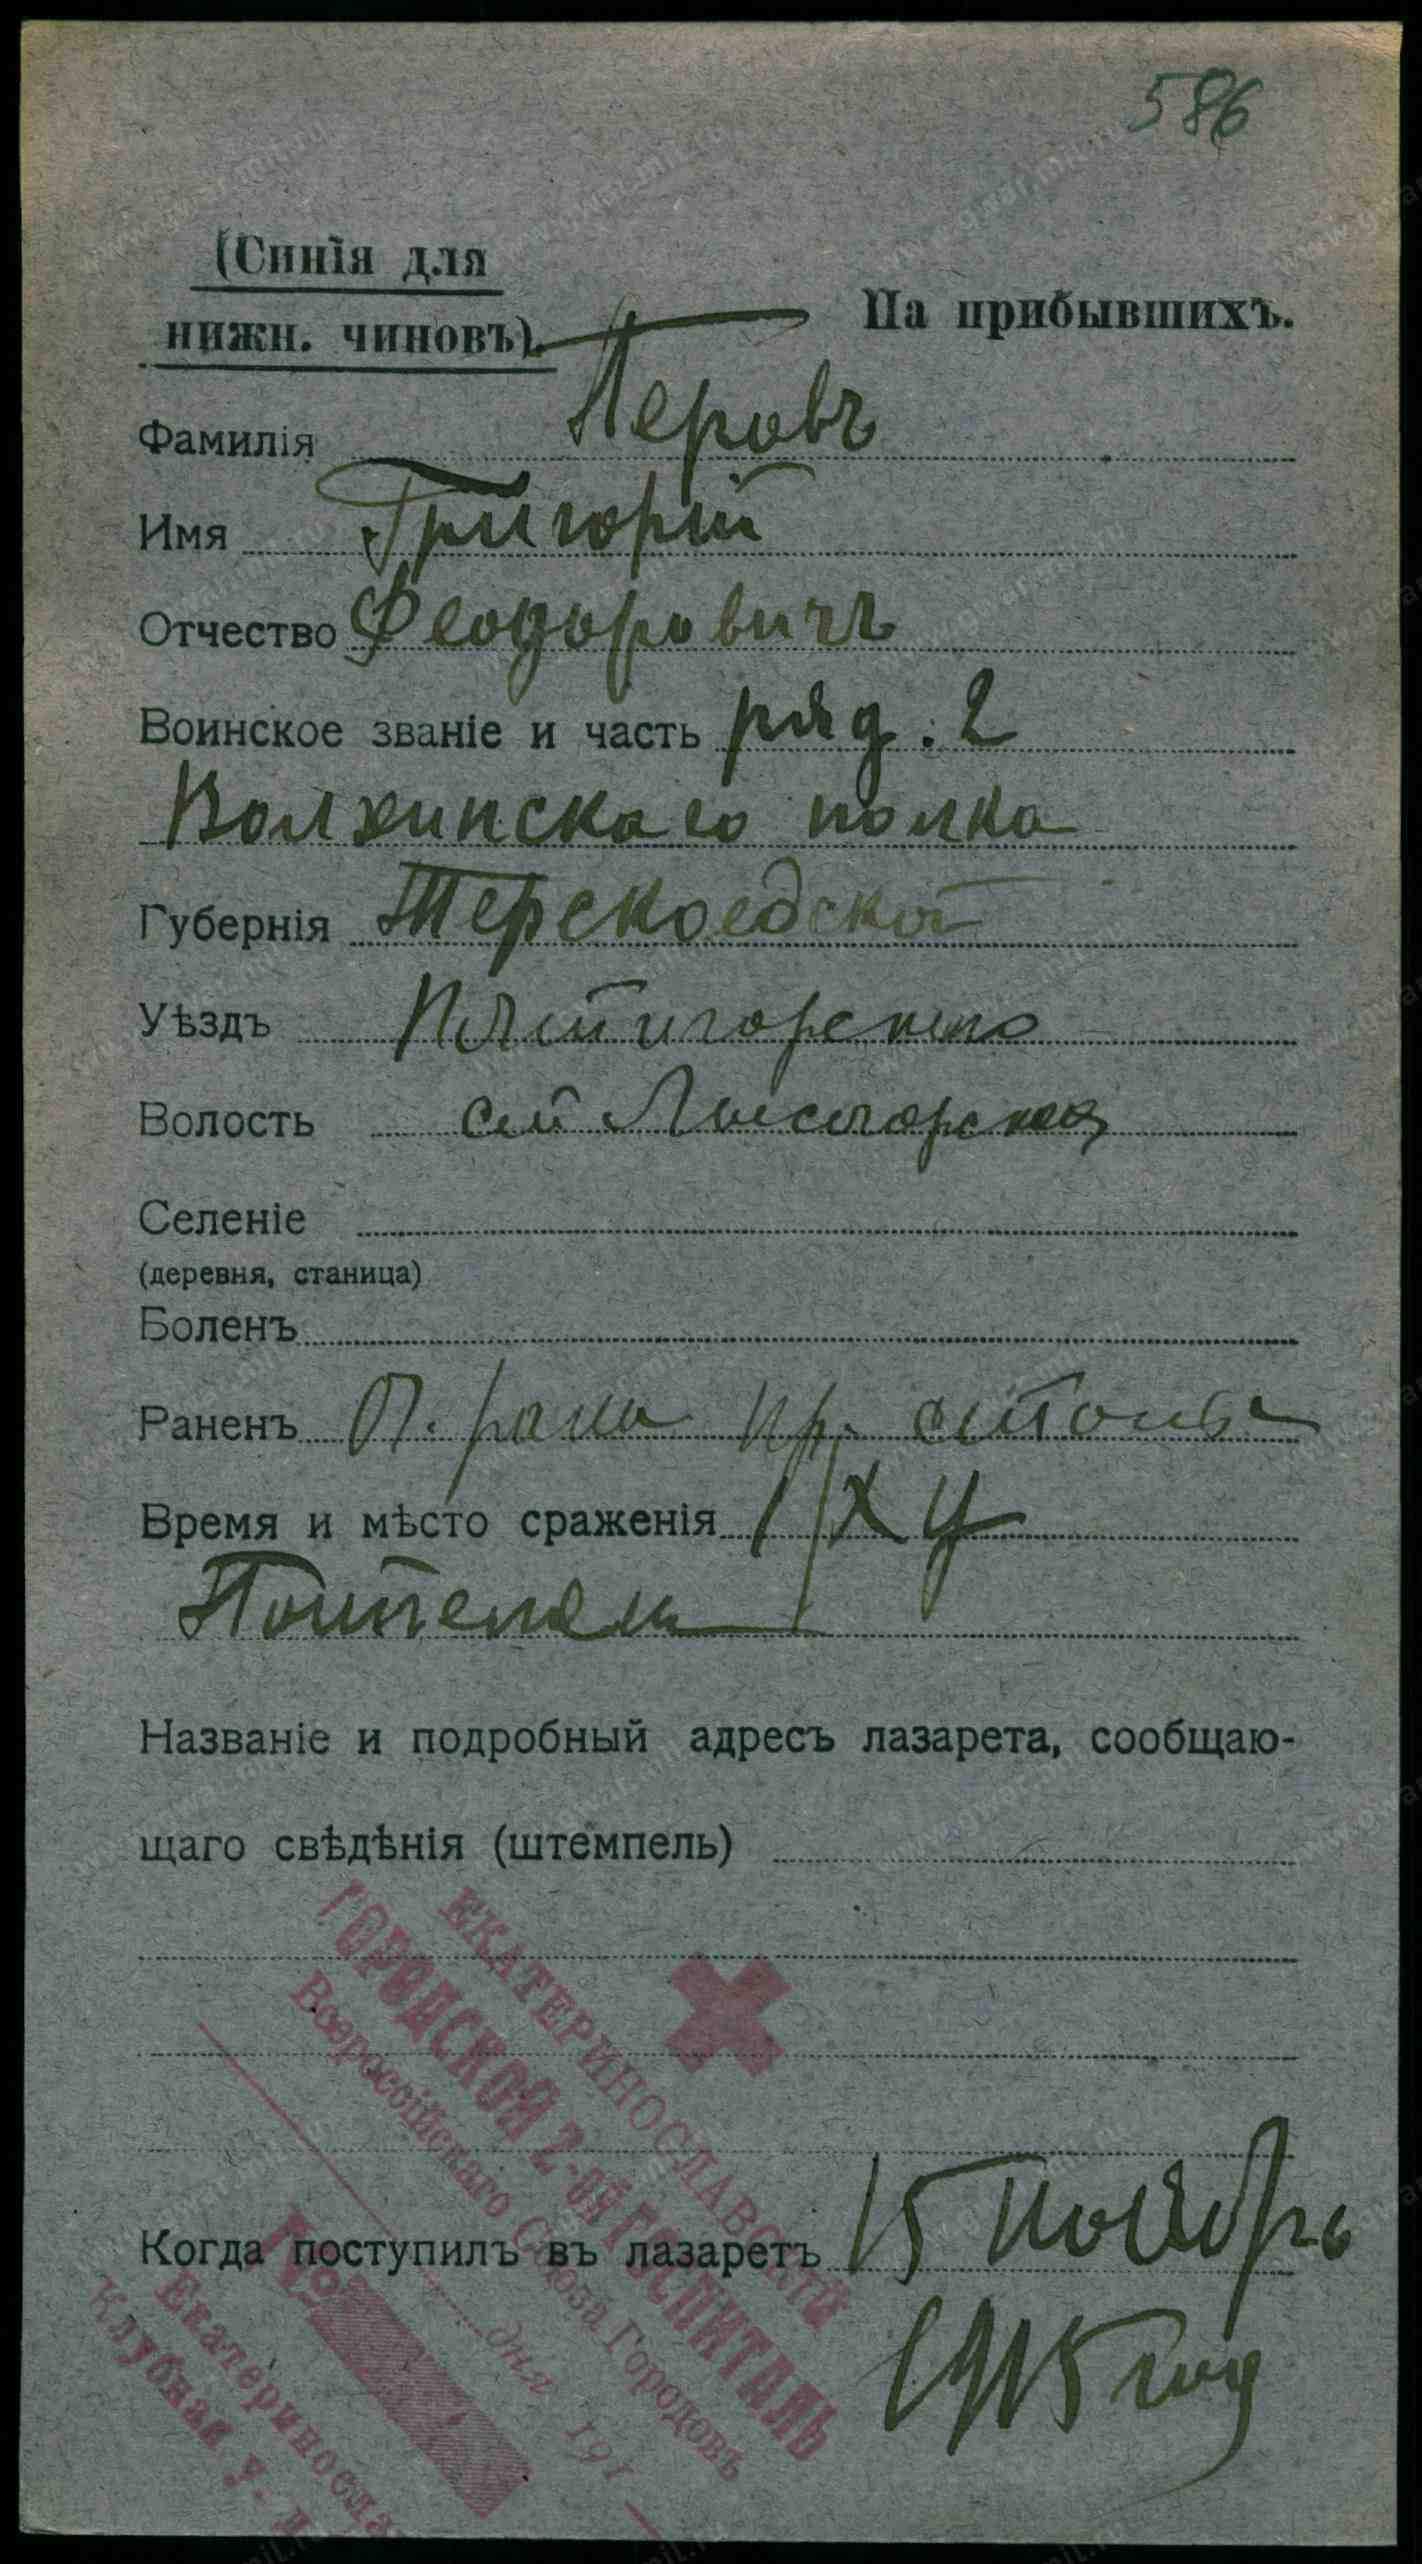 586
(Синія для
нижн. чиновъ).
На прибывшихъ.
Фамилія Перовъ
Имя Григорій
Отчество Феодоровичъ
Воинское званіе и часть ряд. 2
полка
Губернія
Уѣздъ Пятигорскаго
Волость Лысогорская
Селеніе
(деревня, станица)
Боленъ
Раненъ рана пр.
Время и мѣсто сраженія
Названіе и подробный адресъ лазарета, сообщаю-
щаго свѣдѣнія (штемпель)
ЕКАТЕРИНОСЛАВСКІЙ
ГОРОДСКОЙ 2-ОЙ ГОСПИТАЛЬ
Всероссійскаго Союза Городовъ
дня 191
№
Екатериносла
Клубная у. Д
Когда поступилъ въ лазаретъ 15 Ноябрь
1915 год